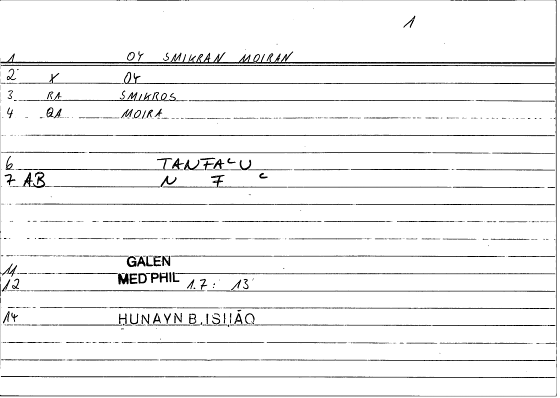 1
1 OY SMIKRAN MOIRAN
2 X OY
3 RA SMIKROS
4 QA MOIRA
6 TANFAcU
7 AB N F c
11 GALEN
12 MED PHIL 1.7: 13
14 HUNAYN B. ISḤĀQ